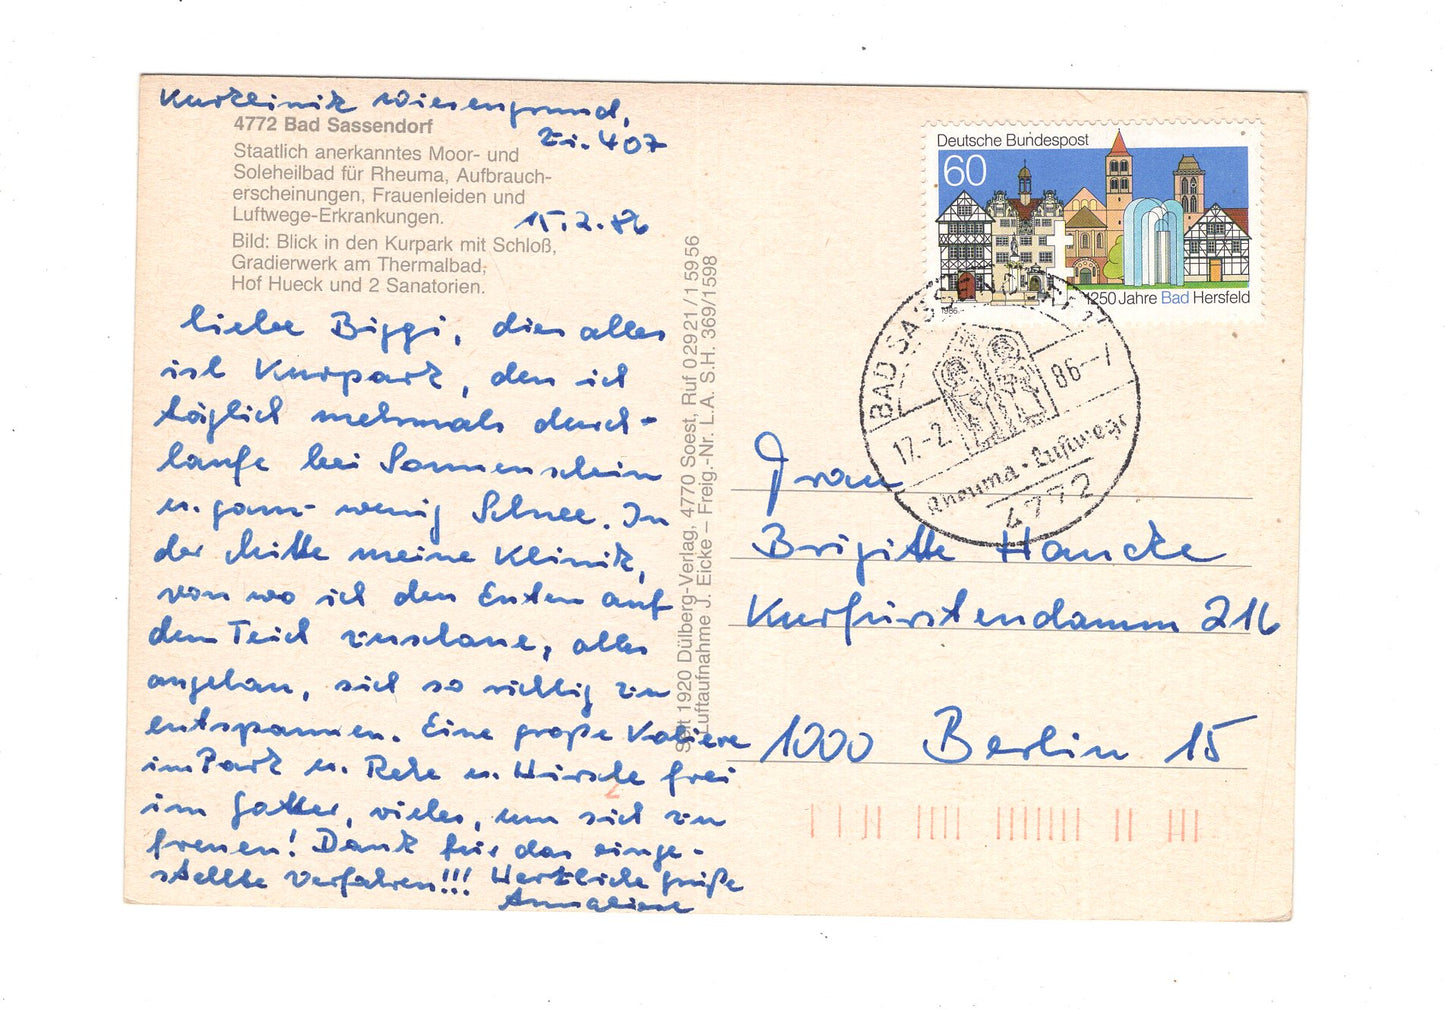 Kurklinik Wiesengrund,
Zi. 407
4772 Bad Sassendorf
Staatlich anerkanntes Moor- und
Soleheilbad für Rheuma, Aufbrauch-
erscheinungen, Frauenleiden und
Luftwege-Erkrankungen.
15.2.86
Bild: Blick in den Kurpark mit Schloß,
Gradierwerk am Thermalbad,
Hof Hueck und 2 Sanatorien.
Liebe Biggi, dies alles
ist Kurpark, den ich
täglich mehrmals durch-
laufe bei Sonnenschein
u. ganz wenig Schnee. In
der Mitte meine Klinik,
von wo ich den Enten auf
dem Teich zuschaue, alles
angetan, sich so richtig zu
entspannen. Eine große Voliere
im Park u. Rehe u. Hirsche frei
im Gatter, vieles, um sich zu
freuen! Dank für das einge-
stellte Verfahren!!! Herzliche Grüße
Anneliese
Seit 1920 Dülberg-Verlag, 4770 Soest, Ruf 0 29 21 / 1 59 56
Luftaufnahme J. Eicke – Freig.-Nr. L.A. S.H. 369/1598
Deutsche Bundespost
60
1250 Jahre Bad Hersfeld
1986
BAD SASSENDORF
17.-2.86-7
Rheuma · Luftwege
4772
Frau
Brigitte Hancke
Kurfürstendamm 216
1000 Berlin 15